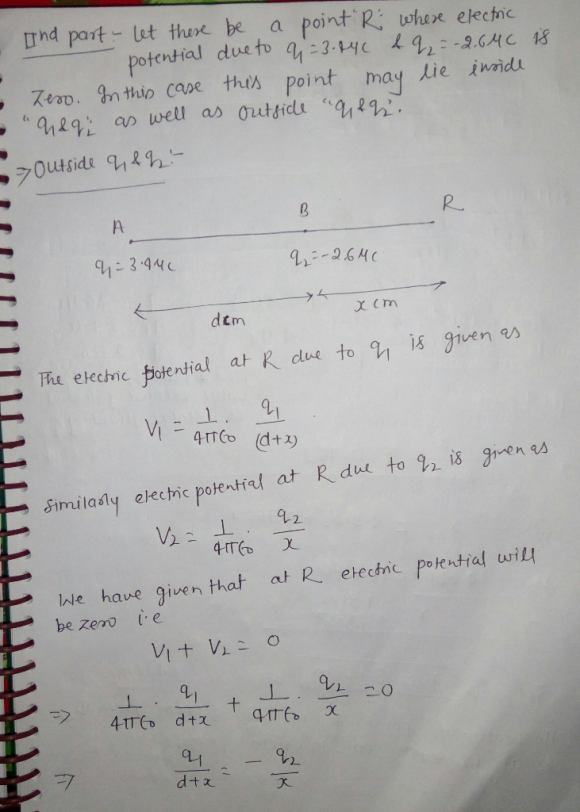 IInd part :- Let there be a point "R" where electric
potential due to q₁ = 3.4μc & q₂ = -2.6μc is
Zero. In this case this point may lie inside
"q₁&q₂" as well as outside "q₁&q₂".
⇒ Outside q₁ & q₂ :-
A B R
q₁ = 3.4μc q₂ = -2.6μc
dcm x cm
The electric potential at R due to q₁ is given as
V₁ = 1/4π∈₀ . q₁/(d+x)
Similarly electric potential at R due to q₂ is given as
V₂ = 1/4π∈₀ . q₂/x
We have given that at R electric potential will
be zero i.e
V₁ + V₂ = 0
⇒ 1/4π∈₀ . q₁/d+x + 1/4π∈₀ . q₂/x = 0
⇒ q₁/d+x = - q₂/x